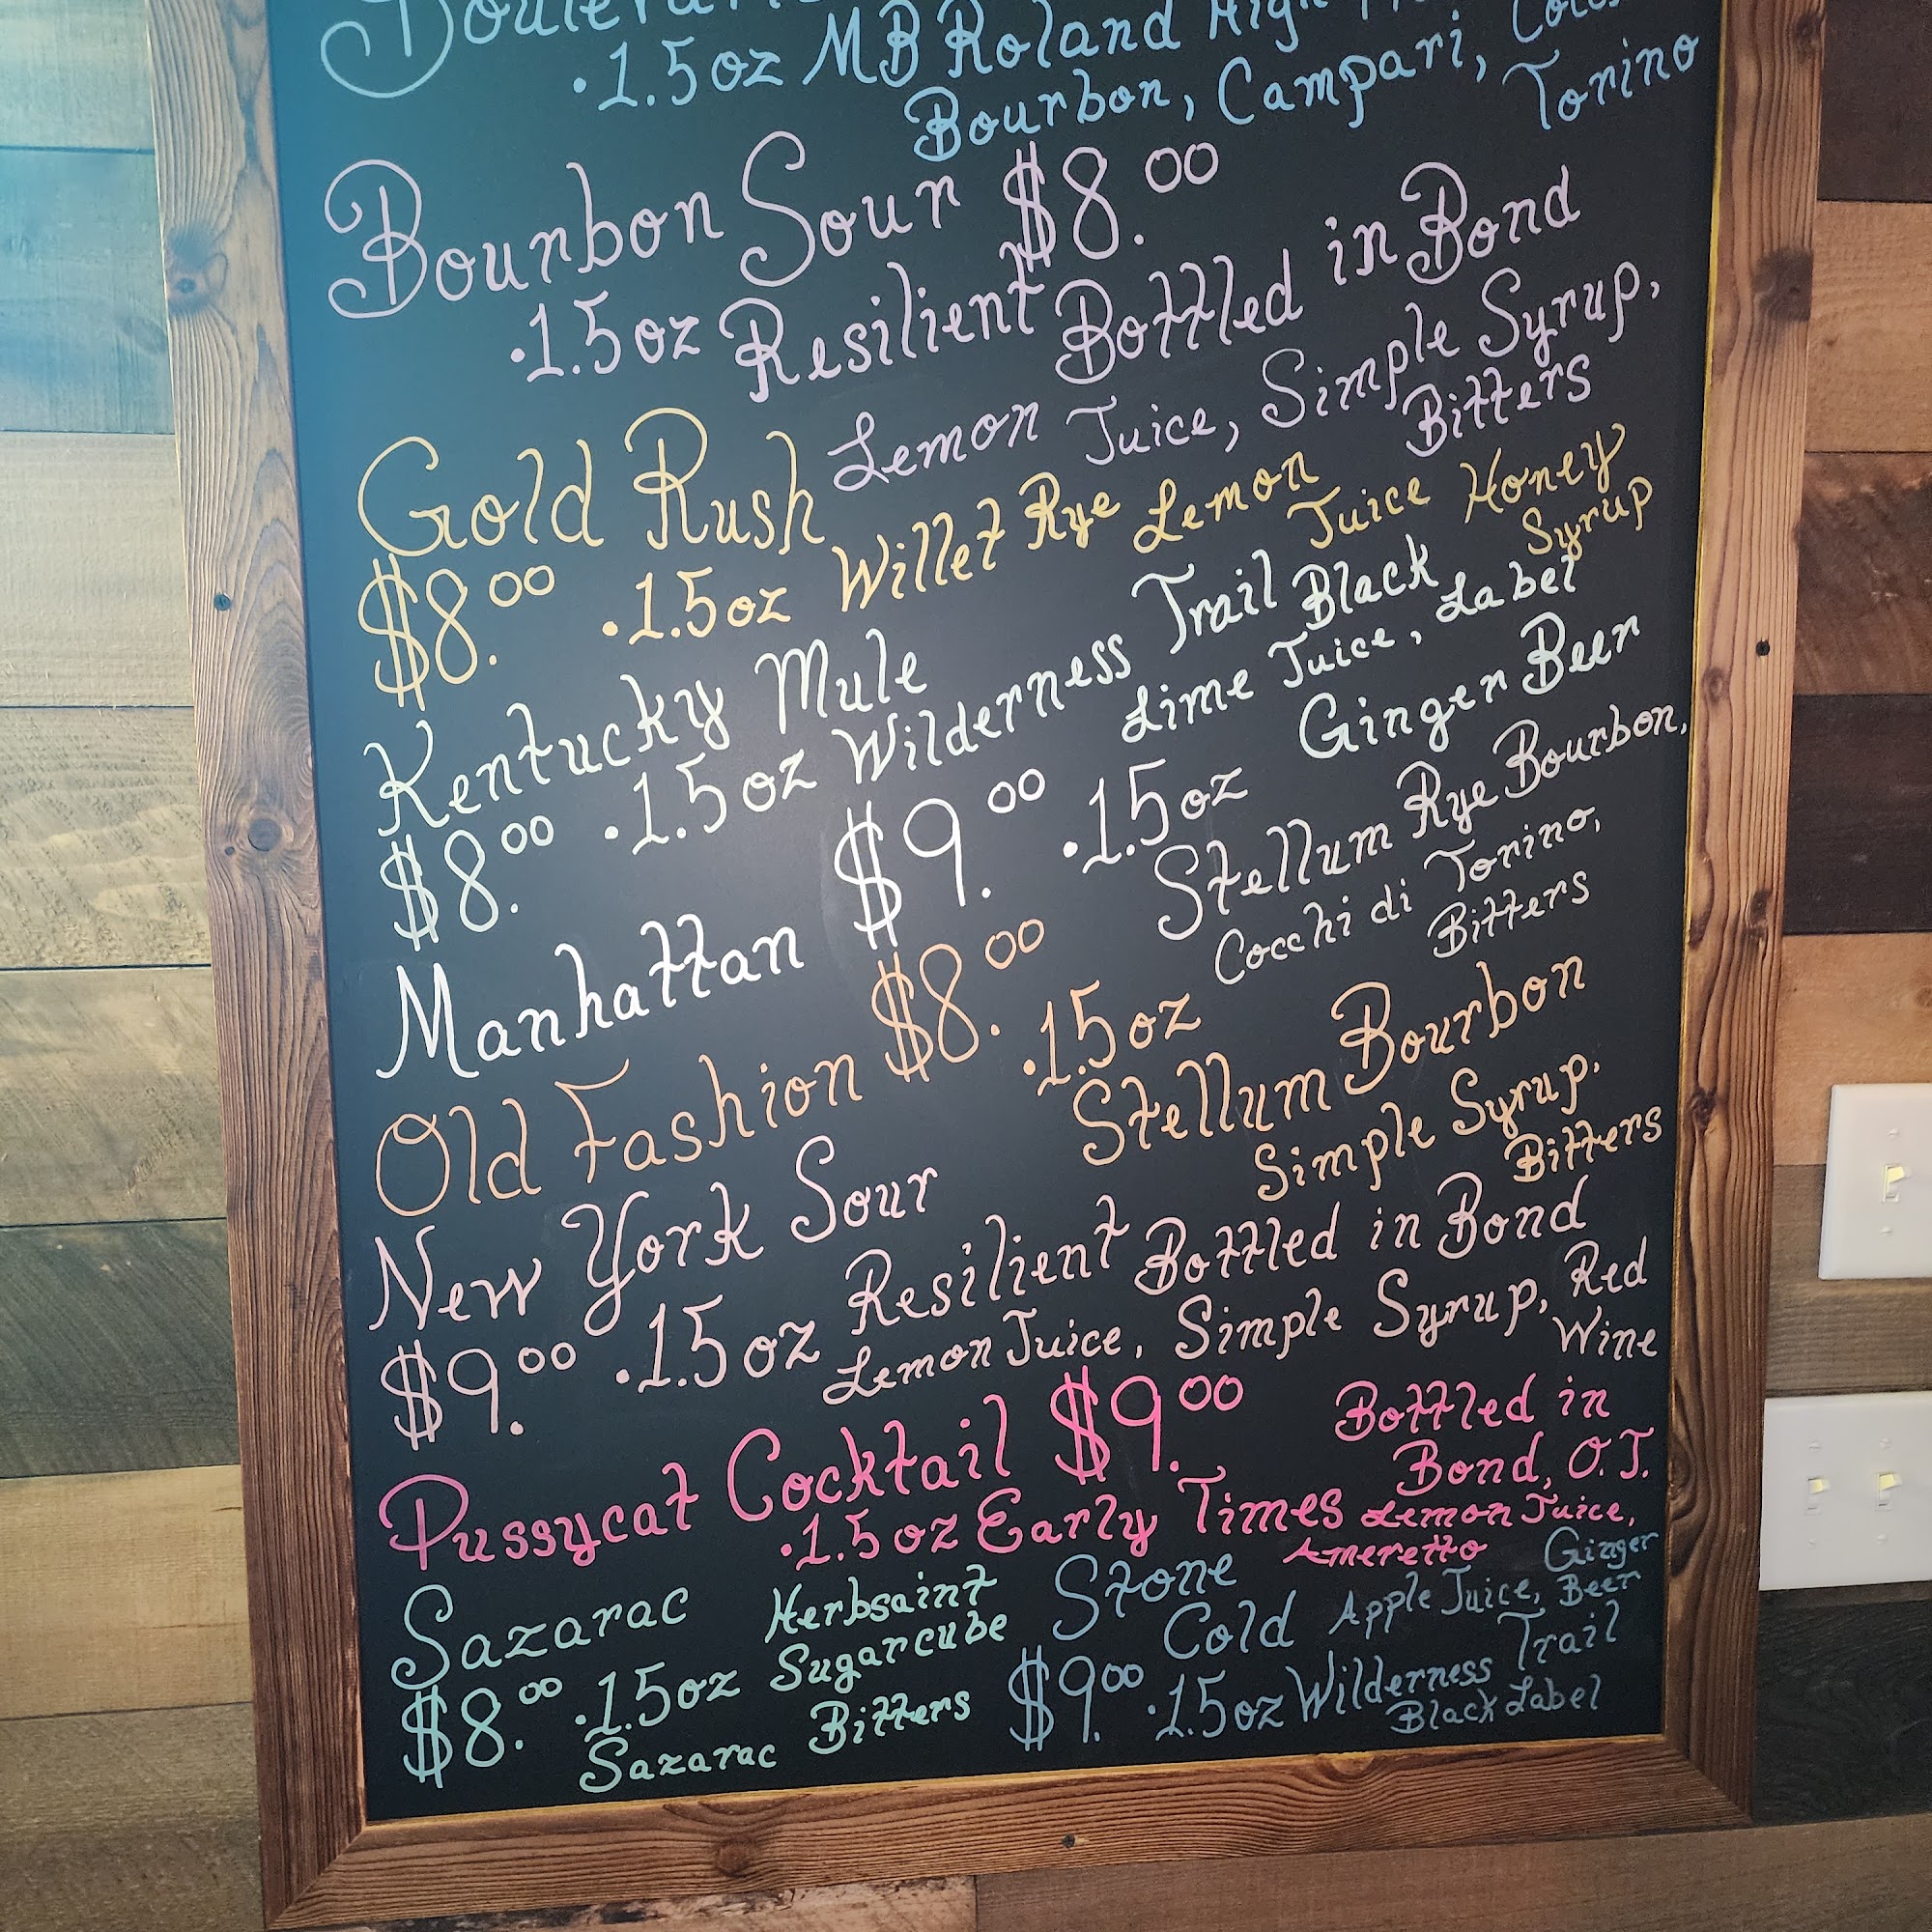 .1.5oz MB Roland
Bourbon, Campari,
Torino
Bourbon Sour $8.00
.1.5oz Resilient Bottled in Bond
Lemon Juice, Simple Syrup,
Bitters
Gold Rush
$8.00 .1.5oz Willet Rye Lemon Juice Honey
Syrup
Kentucky Mule
$8.00 .1.5oz Wilderness Trail Black
Label
Lime Juice,
Ginger Beer
Manhattan $9.00 .1.5oz
Stellum Rye Bourbon,
Cocchi di Torino,
Bitters
Old Fashion $8.00 .1.5oz
Stellum Bourbon
Simple Syrup.
Bitters
New York Sour
$9.00 .1.5oz Resilient Bottled in Bond
Lemon Juice, Simple Syrup, Red
Wine
Pussycat Cocktail $9.00
.1.5oz Early Times Bottled in
Bond, O.J.
Lemon Juice,
Ameretto
Sazarac
$8.00 .1.5oz
Sazarac
Herbsaint
Sugarcube
Bitters
Stone
Cold
$9.00 .1.5oz Wilderness Trail
Black Label
Apple Juice, Ginger
Beer